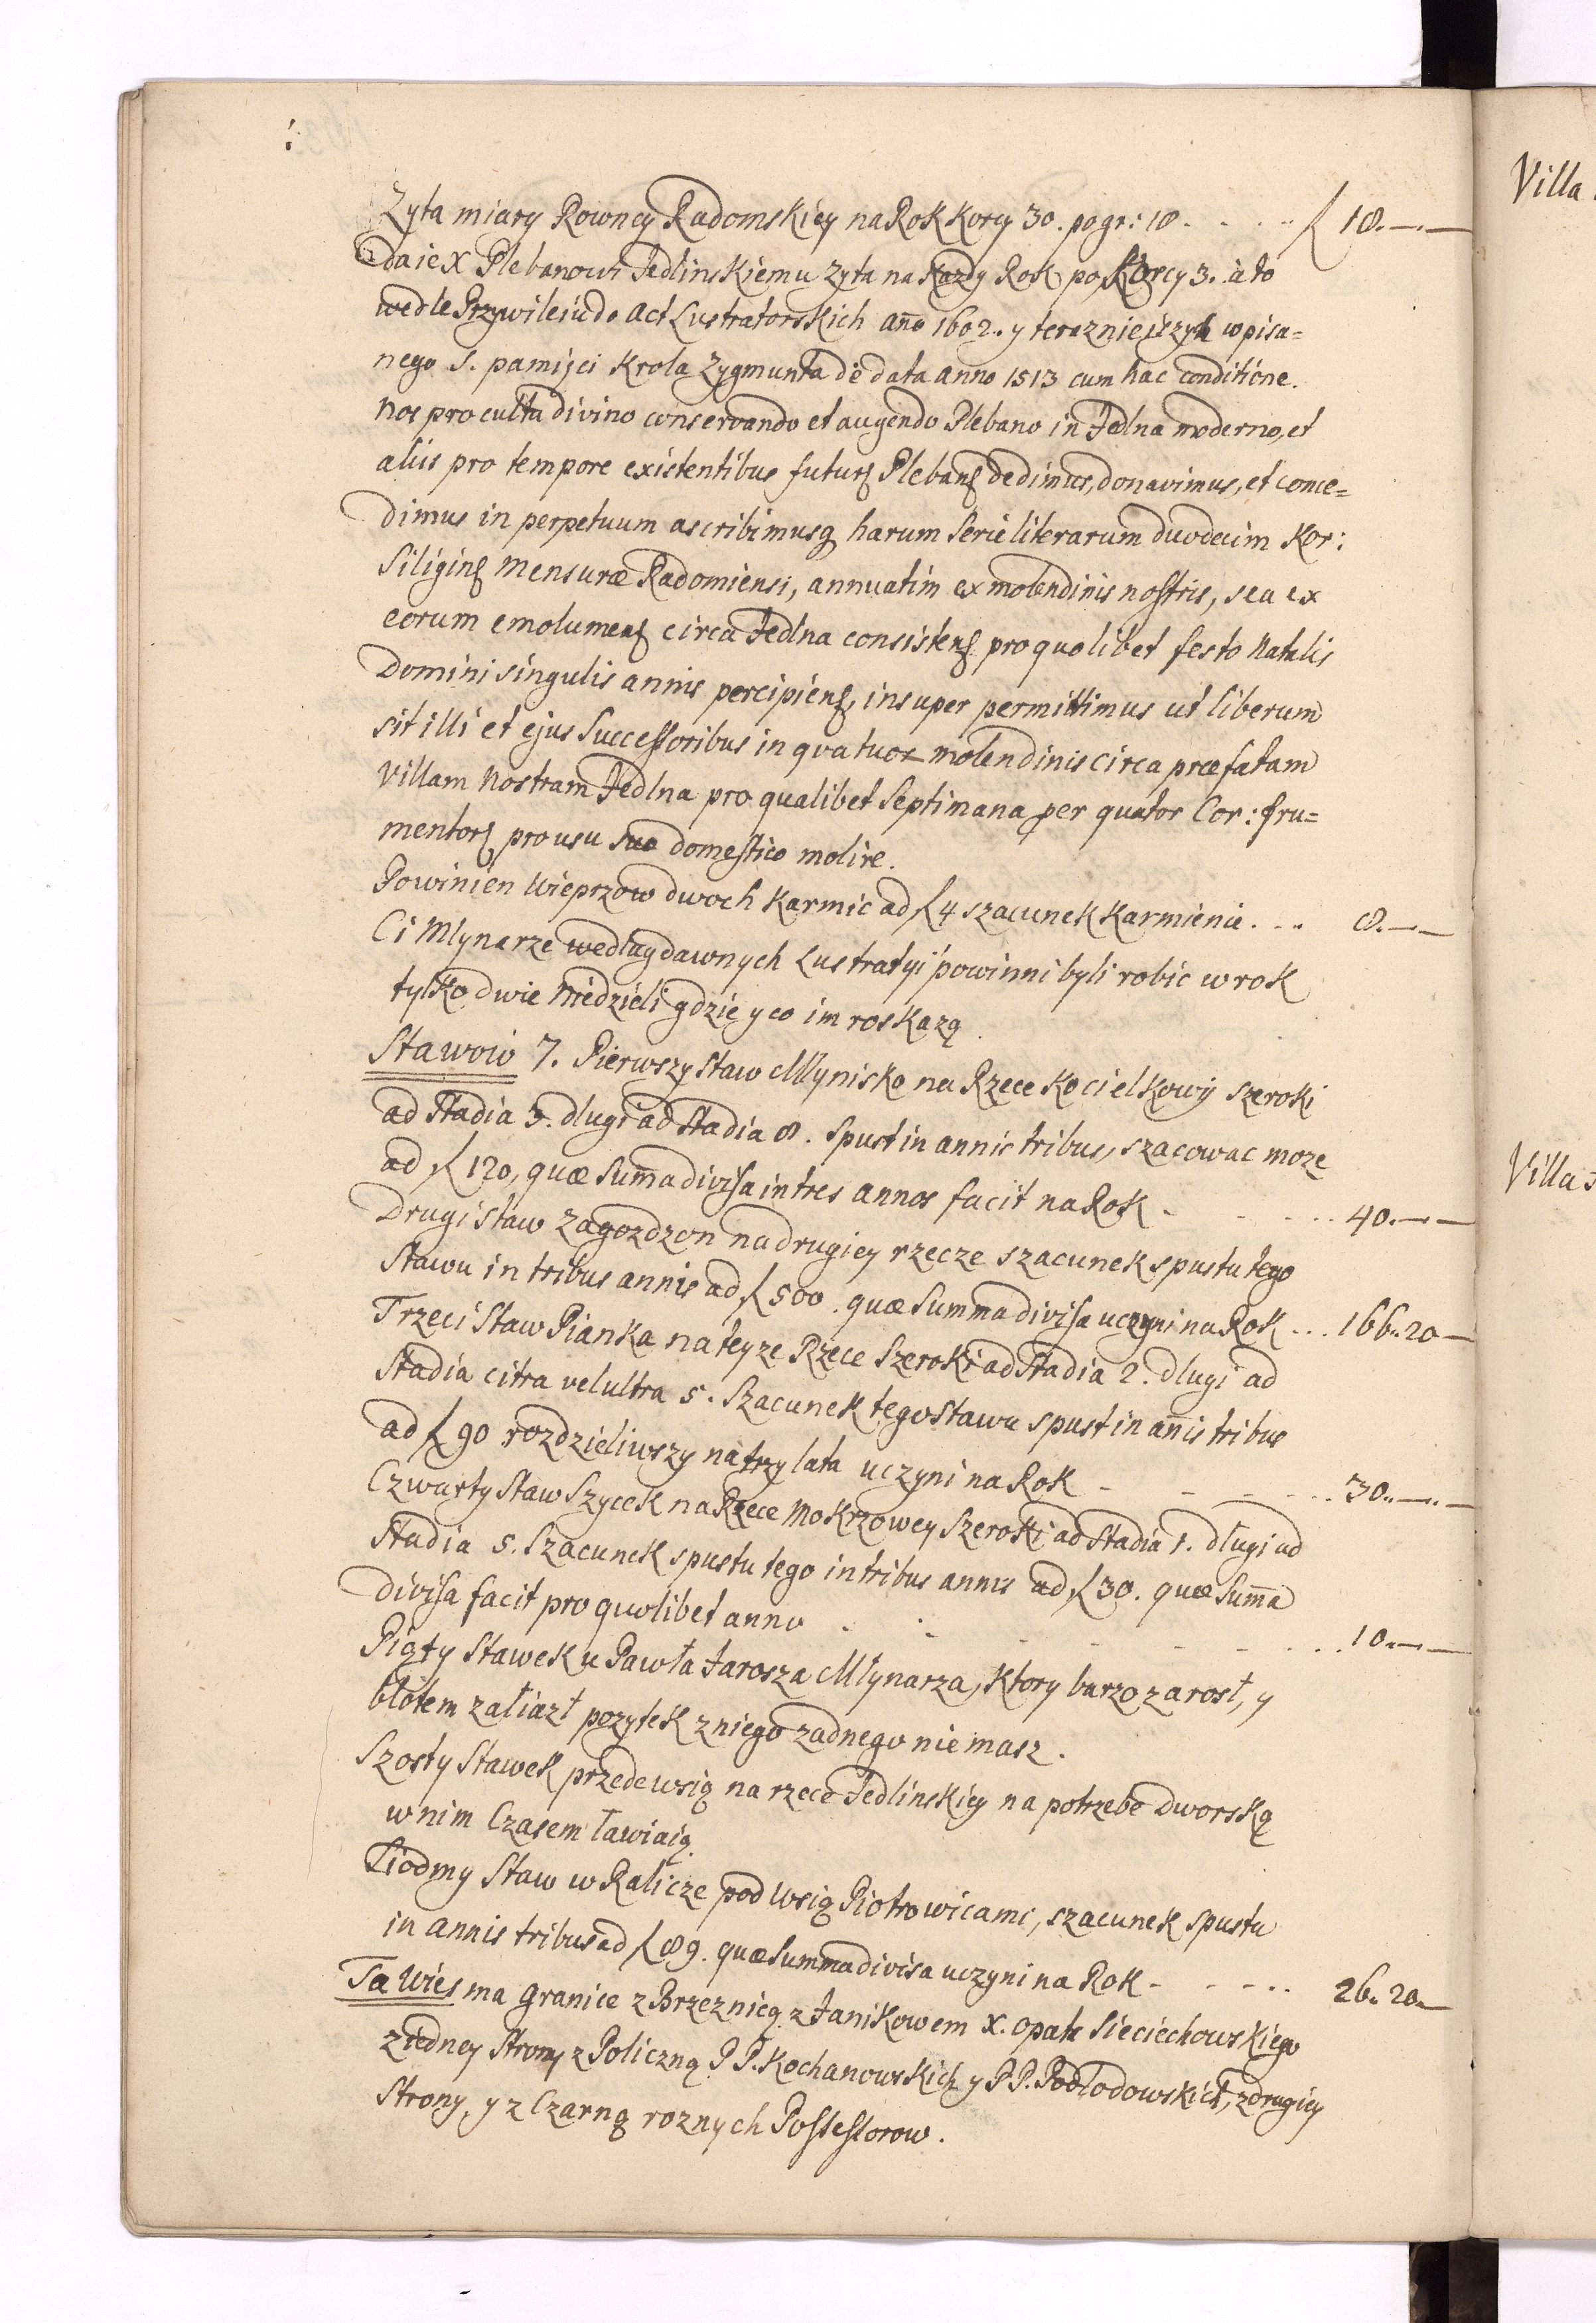 Zyta miary Rowney Radomskiey na Rok Korcy 30. po gr: 18 - - - - ƒ 18.—.—
daie X Plebanowi Jedlinskiemu Zyta na kazdy Rok po Korcy 3. a to
wedle Przywileiu do Act Lustratorskich año 1602. y teraznieiszych wpisa=
nego S. pamięci Krola Zygmunta de data anno 1513 cum hac conditione.
Nos pro cultu divino conservando et augendo Plebano in Jedlna moderno, et
aliis pro tempore existentibus futurꝭ Plebanꝭ dedimus, donavimus, et conce=
dimus in perpetuum ascribimusq harum serie literarum duodecim Kor:
Siliginꝭ Mensuræ Radomiensi, annuatim ex molendinis nostris, seu ex
eorum emolumenꝭ circa Jedlna consistenꝭ pro quolibet festo Natalis
Domini singulis annis percipienꝭ, insuper permittimus ut liberum
sit illi et ejus Successoribus in qvatuor molendinis circa præfatam
Villam Nostram Jedlna pro qualibet Septimana per quator Cor: fru=
mentorꝭ pro usu suo domestico molire.
Powinien Wieprzow dwoch Karmic ad ƒ 4 szacunek Karmienia . . . 8.—.—
Ci Mlynarze wedlug dawnych Lustratyi powinni byli robic w rok
tylko dwie Niedzieli gdzie y co im roskazą
Stawow 7. Pierwszy staw Młynisko na Rzece Kocielkowy szeroki
ad Stadia 3. dlugi ad Stadia 8. Spust in annis tribus, szacowac moze
ad ƒ 120, quæ Sum̃a divisa in tres annos facit na Rok - - - - . . 40.—.—
Drugi staw Zagozdzon na drugiey rzecze szacunek spustu tego
Stawu in tribus annis ad ƒ 500. quæ Summa divisa uczyni na Rok . . . 166.20—
Trzeci Staw Pianka na teyze Rzece Szeroki ad Stadia 2. dlugi ad
Stadia citra vel ultra 5. Szacunek tego Stawu spust in añis tribus
ad ƒ 90 rozdzieliwszy na trzy lata uczyni na Rok - - - - . . 30.—.—
Czwarty Staw Szycek na Rzece Mokrzowey Szeroki ad Stadia 1. dlugi ad
Stadia 5. Szacunek spustu tego in tribus annis ad ƒ 30. quæ Sum̃a
divisa facit pro quolibet anno - - - - - - . . . 10.—.—
Piąty Stawek u Pawła Jarosza Młynarza, ktory barzo zarosł, y
błotem zaliazł pozytek z niego zadnego nie masz.
Szosty Stawek przede wsią na rzece Jedlinskiey na potrzebe Dworską
w nim Czasem ławiaią
Siodmy Staw w Raliczе pod Wsią Piotrowicami, szacunek spustu
in annis tribus ad ƒ 89. quæ Summa divisa uczyni na Rok - - - . . 26.20.—
Ta Wies ma granice z Brzeznicą z Janikowem X. Opata Sieciechowskiego
z iedney Strony z Policzną PP. Kochanowskich y PP. Podlodowskich, z drugiey
Strony, y z Czarną roznych Possessorow.
Villa
Villa